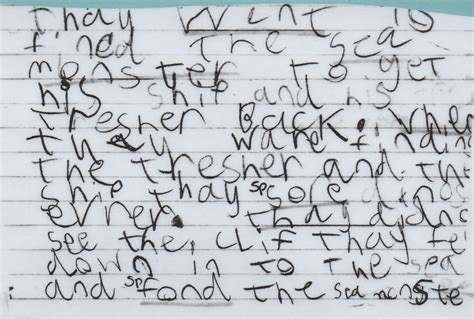 thay went to
fined the sea
monster to get
his ship and his
tresher Back. when
thay ware findin
the tresher and the
ship thay sp sore
erner. thay didn
see the clif thay fe
down in to the sea
and sp fond the sea monste